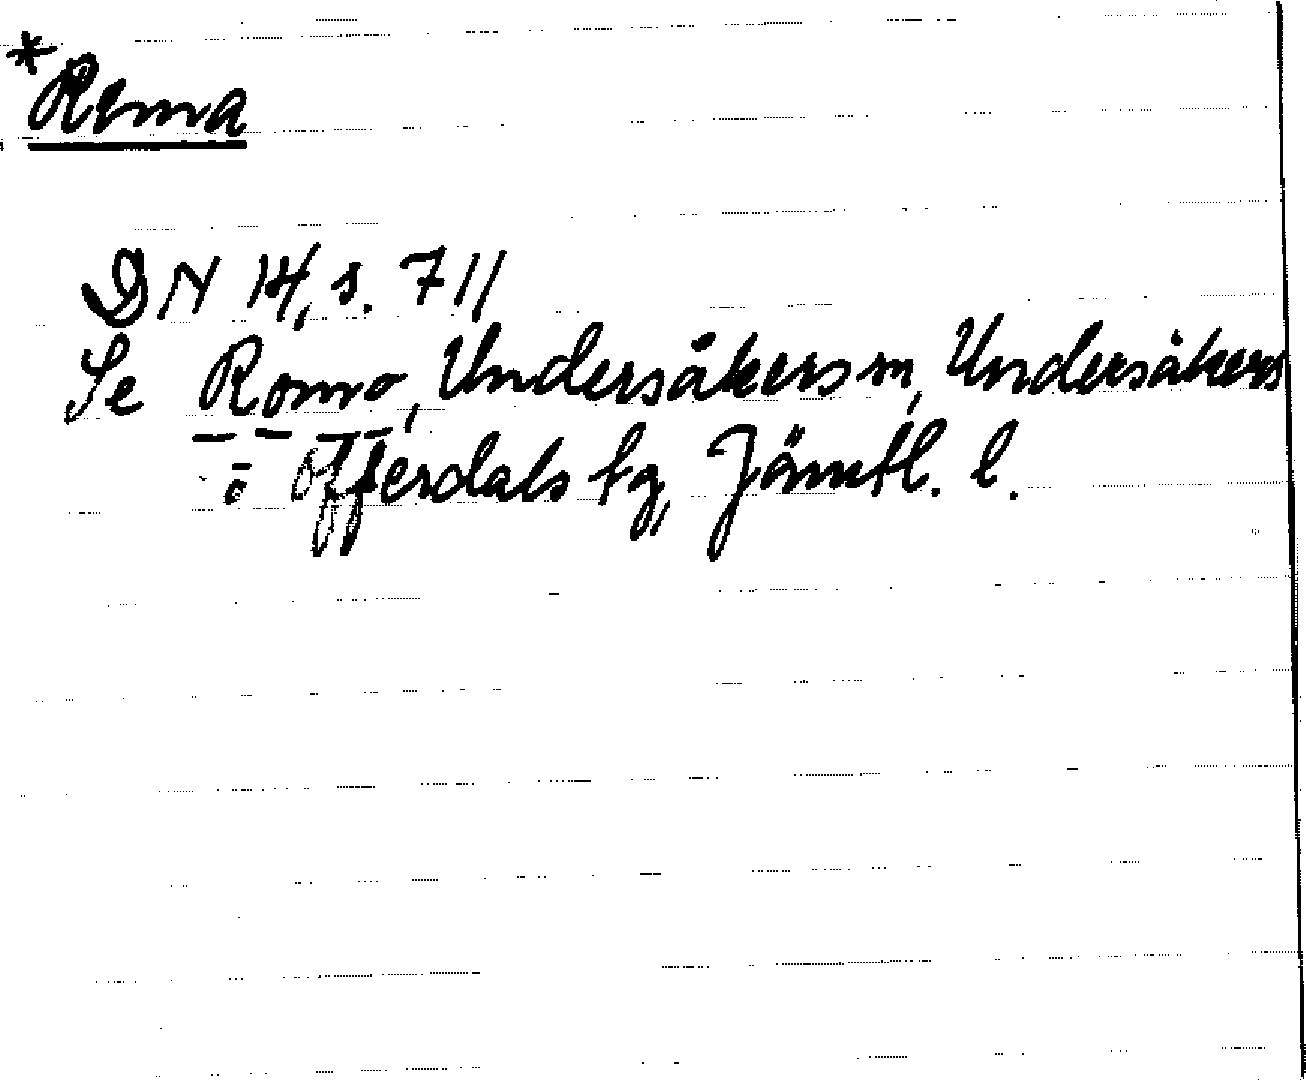 *Rema
DN 14, s. 711
Se Romo, Undersåkers sn, Undersåkers
o Offerdals tg, Jämtl. l.